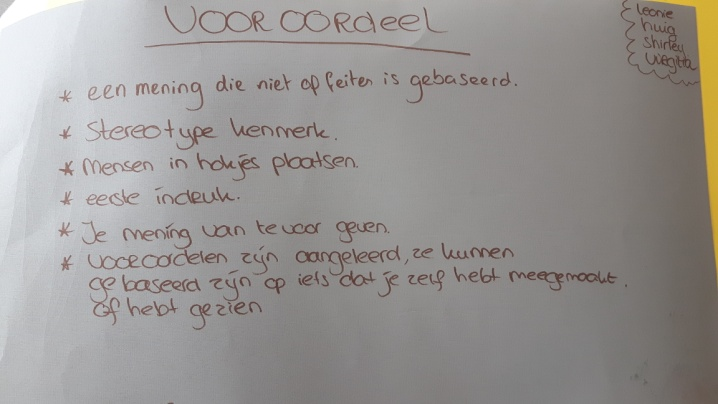 VOOROORDEEL
leonie
huig
shirley
* een mening die niet op feiten is gebaseerd.
* Stereotype kenmerk.
* Mensen in hokjes plaatsen.
* eerste indruk.
* Je mening van te voor geven.
* vooroordelen zijn aangeleerd, ze kunnen
gebaseerd zijn op iets dat je zelf hebt meegemaakt.
Of hebt gezien